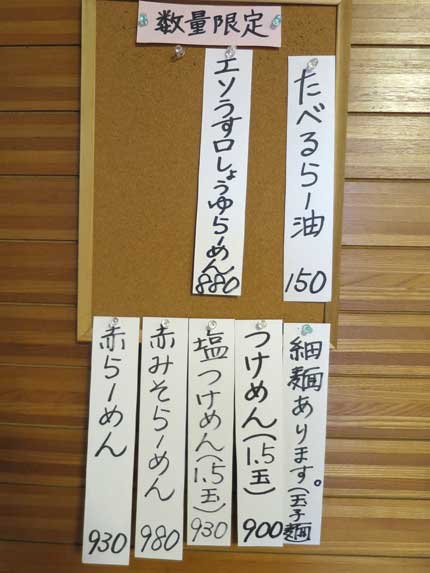 数量限定
たべるらー油 150
エソうす口しょうゆらーめん 880
細麺あります。(玉子麺
つけめん(1.5玉) 900
塩つけめん(1.5玉) 930
赤みそらーめん 980
赤らーめん 930